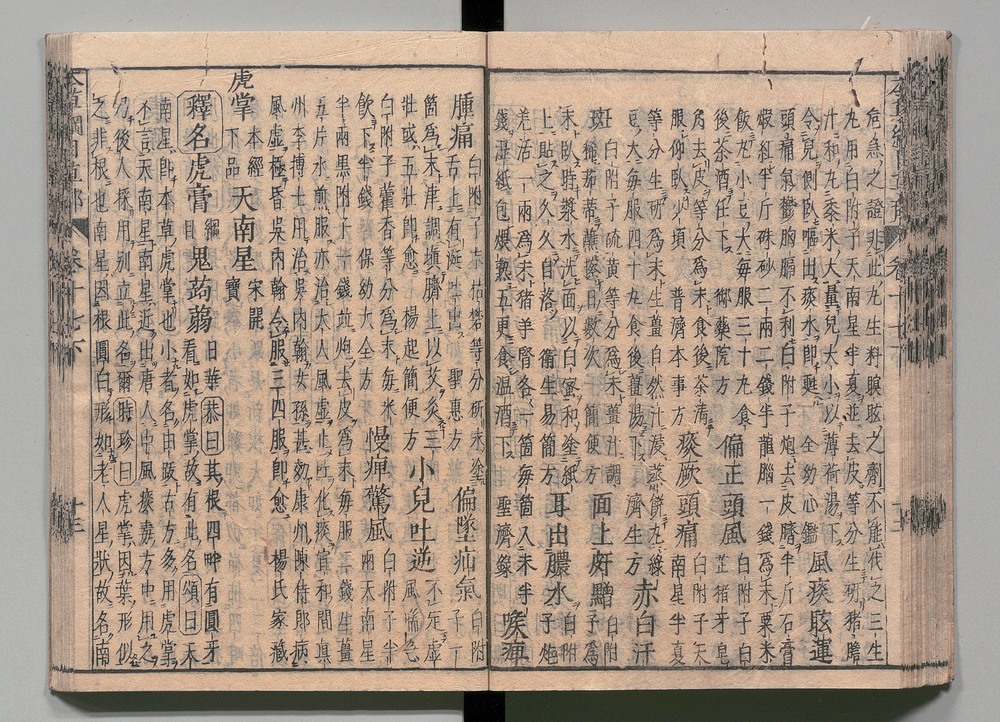 危急之證非此丸生料瞑眩之劑不能伐之三生
丸用白附子天南星半夏並去皮等分生研猪膽
汁和丸黍米大量兒大小以薄荷湯下
令兒側臥嘔出痰水即甦 全幼心鑑 風痰眩運
頭痛氣鬱胸膈不利白附子炮去皮臍半斤石膏
煅紅半斤硃砂二兩二錢半龍腦一錢爲末粟米
飯丸小豆大每服三十丸食後茶酒任下 御藥院方 偏正頭風 白附子白芷猪牙皂
角去皮等分爲末食後茶清服仰臥少頃 普濟本事方 痰厥頭痛 白附子天南星半夏
等分生研爲末生薑自然汁浸蒸餅丸綠
豆大每服四十丸食後薑湯下 濟生方 赤白汗
斑 白附子硫黄等分爲末薑汁調稀茄蒂蘸擦日數次 簡便方 面上䵟䵳 白附子爲
末臥時漿水洗面以白蜜和塗紙上貼之久久自落 衛生易簡方 耳出膿水 白附子炮
羌活一兩爲末猪羊腎各一箇每箇入末半錢濕紙包煨熟五更食温酒下 聖濟錄 喉痺
腫痛 白附子末枯礬等分研末塗舌上有涎吐出 聖惠方 偏墜疝氣 白附子一
箇爲末津調塡臍上以艾灸三壯或五壯即愈 楊起簡便方 小兒吐逆 不定虛風喘急
白附子藿香等分爲末每米飲下半錢 保幼大全方 慢痺驚風 白附子半
兩天南星半兩黒附子一錢並炮去皮爲末每服二錢生薑
五片水煎服亦治大人風虛止吐化痰宣和間眞
州李博士用治吳内翰女孫甚効康州陳侍郎病
風虛極昏吳内翰令服三四服即愈 楊氏家藏
虎掌 本經下品 天南星 宋開寶
釋名 虎膏 綱目 鬼蒟蒻 日華 恭曰其根四畔有圓牙
看如虎掌故有此名 頌曰天
南星即本草虎掌也小者名由跋古方多用虎掌
不言天南星南星近出唐人中風痰毒方中用之
乃後人採用別立此名爾 時珍曰虎掌因葉形似
之非根也南星因根圓白形如老人星狀故名南